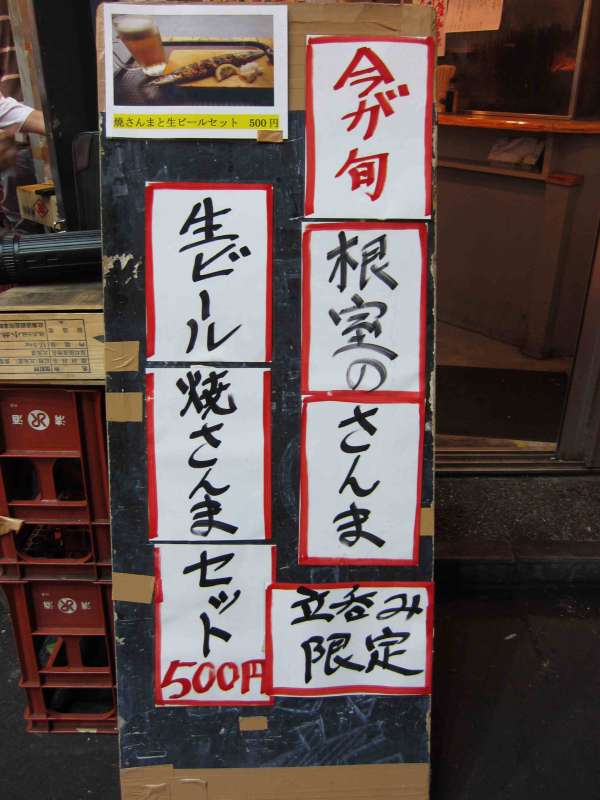 焼さんまと生ビールセット 500円
今が旬
根室の
さんま
生ビール
焼さんま
セット
500円
立呑み
限定